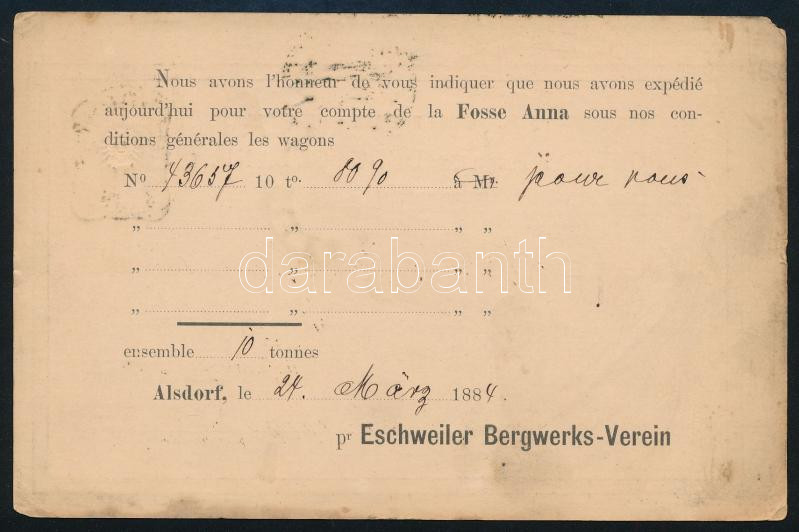 Nous avons l'honneur de vous indiquer que nous avons expédié
aujourd'hui pour votre compte de la Fosse Anna sous nos con-
ditions générales les wagons
No 43657 10 to. 80 90 à Mr pour vous
" " " "
" " " "
" " " "
darabanth
ensemble 10 tonnes
Alsdorf, le 24. März 1884.
pr Eschweiler Bergwerks-Verein